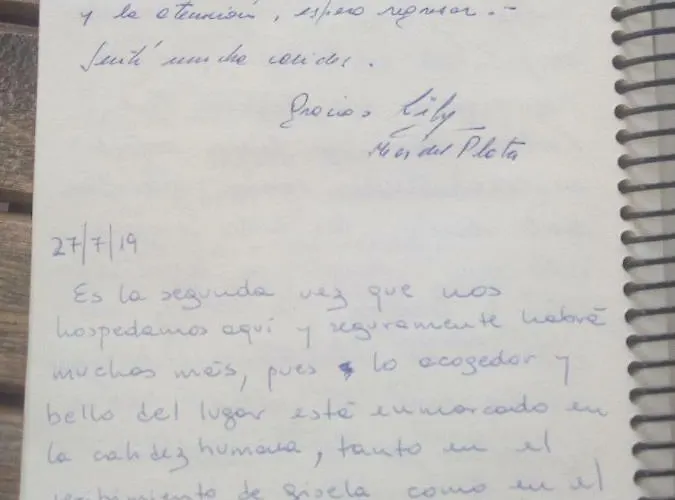 y la atención, espero regresar.-
Sentí mucha calidez.
Gracias Lily
Mar del Plata
27/7/19
Es la segunda vez que nos
hospedamos aquí y seguramente habrá
muchas más, pues lo acogedor y
bello del lugar está enmarcado en
la calidez humana, tanto en el
recibimiento de Gisela como en el